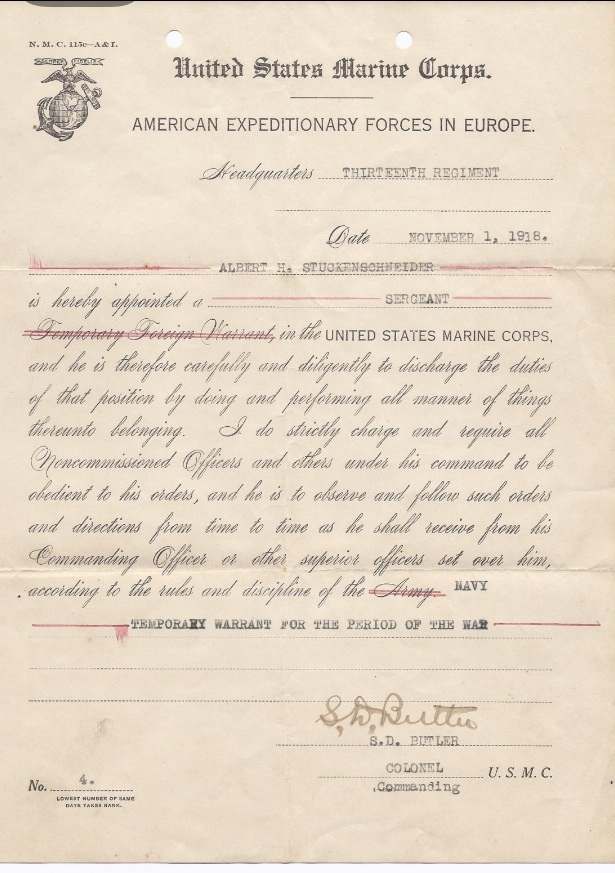 N. M. C. 115c—A&I.
United States Marine Corps.
AMERICAN EXPEDITIONARY FORCES IN EUROPE.
Headquarters THIRTEENTH REGIMENT
Date NOVEMBER 1, 1918.
ALBERT H. STUCKENSCHNEIDER
is hereby appointed a SERGEANT
Temporary Foreign Warrant, in the UNITED STATES MARINE CORPS,
and he is therefore carefully and diligently to discharge the duties
of that position by doing and performing all manner of things
thereunto belonging. I do strictly charge and require all
Noncommissioned Officers and others under his command to be
obedient to his orders, and he is to observe and follow such orders
and directions from time to time as he shall receive from his
Commanding Officer or other superior officers set over him,
according to the rules and discipline of the Army. NAVY
TEMPORARY WARRANT FOR THE PERIOD OF THE WAR
S. D. Butler
S.D. BUTLER
COLONEL U. S. M. C.
Commanding
No. 4.
LOWEST NUMBER OF SAME
DATE TAKES RANK.